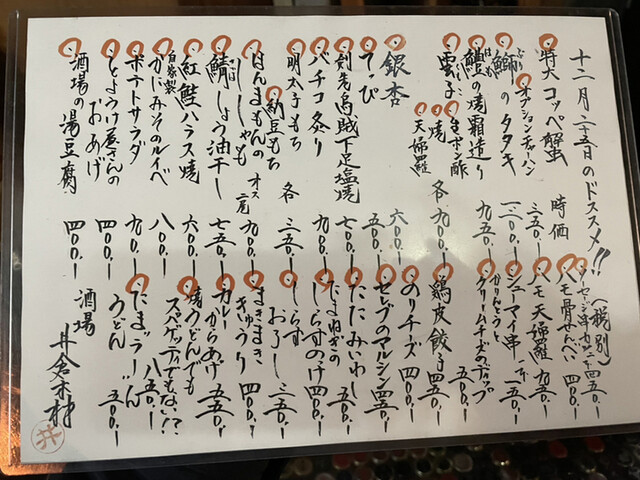 十二月二十五日のドスメ!!(税別)
特大コッペ蟹 時価
オプションチャーハン 三五〇.ー
鰤のタタキ 一二〇〇.ー
ぶり
鱧の焼霜造り 九五〇.ー
はも
雲子 各 九〇〇.ー
くもこ
生ポン酢
焼
天婦羅
銀杏 六〇〇.ー
てっぴ 五〇〇.ー
剣先烏賊下足塩焼 七〇〇.ー
バチコ炙り 九〇〇.ー
明太子もち
納豆もち 各 三五〇.ー
ほんまもんの
ししゃも オス 二尾 九〇〇.ー
鯖しょう油干し 七五〇.ー
さば
紅鮭ハラス焼 六〇〇.ー
自家製
かにみそのルイベ 八〇〇.ー
ポテトサラダ 九〇〇.ー
とようけ屋さんの
おあげ 四〇〇.ー
酒場の湯豆腐 四〇〇.ー
ハモ骨せんべい 四五〇.ー
ハモ天婦羅 九五〇.ー
シューマイ串 一五〇.ー
かりんとうと
クリームチーズのディップ 五〇〇.ー
鶏皮餃子 四五〇.ー
のりチーズ 四〇〇.ー
セレブのマルシン 四五〇.ー
たたみいわし 五〇〇.ー
たまねぎの
しらすのけ 四〇〇.ー
しらす
おろし 三五〇.ー
まきまき
きゅうり 四〇〇.ー
カレー
からあげ 五五〇.ー
焼うどんでも
スパゲッティでもない!? 八五〇.ー
たまぅーどん
うどん 五〇〇.ー
酒場 井倉木材